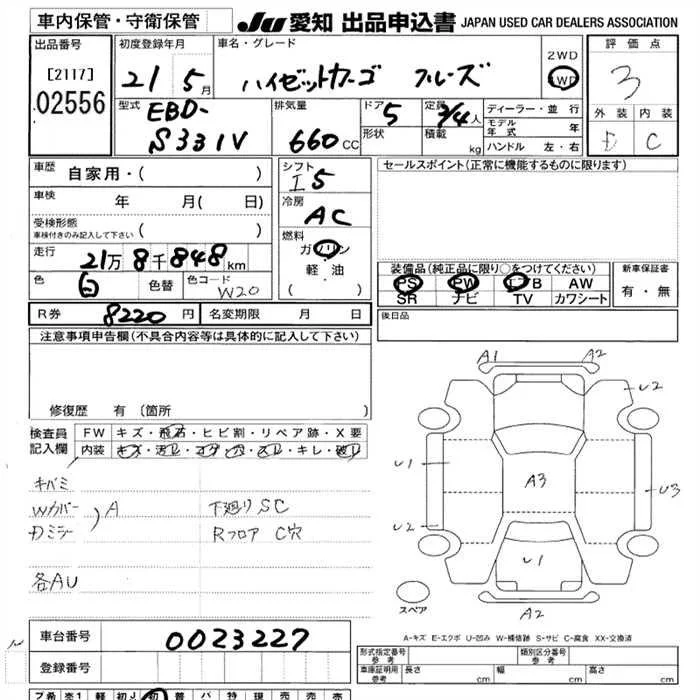 車内保管・守衛保管 JU 愛知 出品申込書 JAPAN USED CAR DEALERS ASSOCIATION
出品番号 初度登録年月 車名・グレード 評価点
[2117] 02556 21 5月 ハイゼットカーゴ クルーズ 2WD 4WD 3
型式 EBD- S331V 排気量 660CC ドア 5 形状 定員 2/4人 積載 kg ディーラー・並行 モデル年式 年 ハンドル 左・右 外装 内装 C
車歴 自家用・( ) シフト I5 セールスポイント(正常に機能するものに限ります)
車検 年 月( 日) 冷房 AC
受検形態 車検付きのみ記入して下さい ( )
燃料 ガソリン 軽油 ( )
走行 21万8千848km
装備品(純正品に限り○をつけてください) 新車保証書
色 白 色替 色コード W20
PS PW エアB AW 有・無
SR ナビ TV カワシート
R券 8220円 名変期限 月 日 後日品
注意事項申告欄(不具合内容等は具体的に記入して下さい)
修復歴 有 [箇所 ]
検査員記入欄 FW キズ・飛石・ヒビ割・リペア跡・X要
内装 キズ・汚レ・コゲ・穴・スレ・キレ・破レ
キバミ
Wカバー A 下廻りSC
Dミラー Rフロア C穴
各AU
A1 A2
U2
U1 A3 U3
U2
U1
A2
スペア
A-キズ E-エクボ U-凹み W-補修跡 S-サビ C-腐食 XX-交換済
車台番号 0023227
登録番号
形式指定番号 参考 類別区分番号 参考
車庫証明用 参考 長さ cm 幅 cm 高さ cm